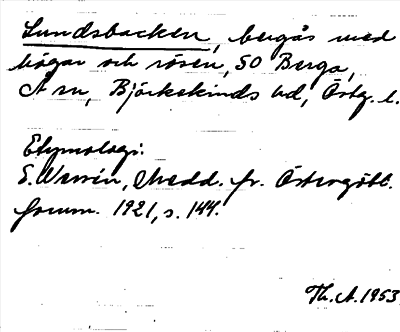 Lundsbacken, bergås med
högar och rösen, SO Berga,
Å sn, Björkekinds hd, Östg. l.
Etymologi:
E. Wessén, Medd. fr. Östergötl.
fornm. 1921, s. 144.
Th. A. 1953